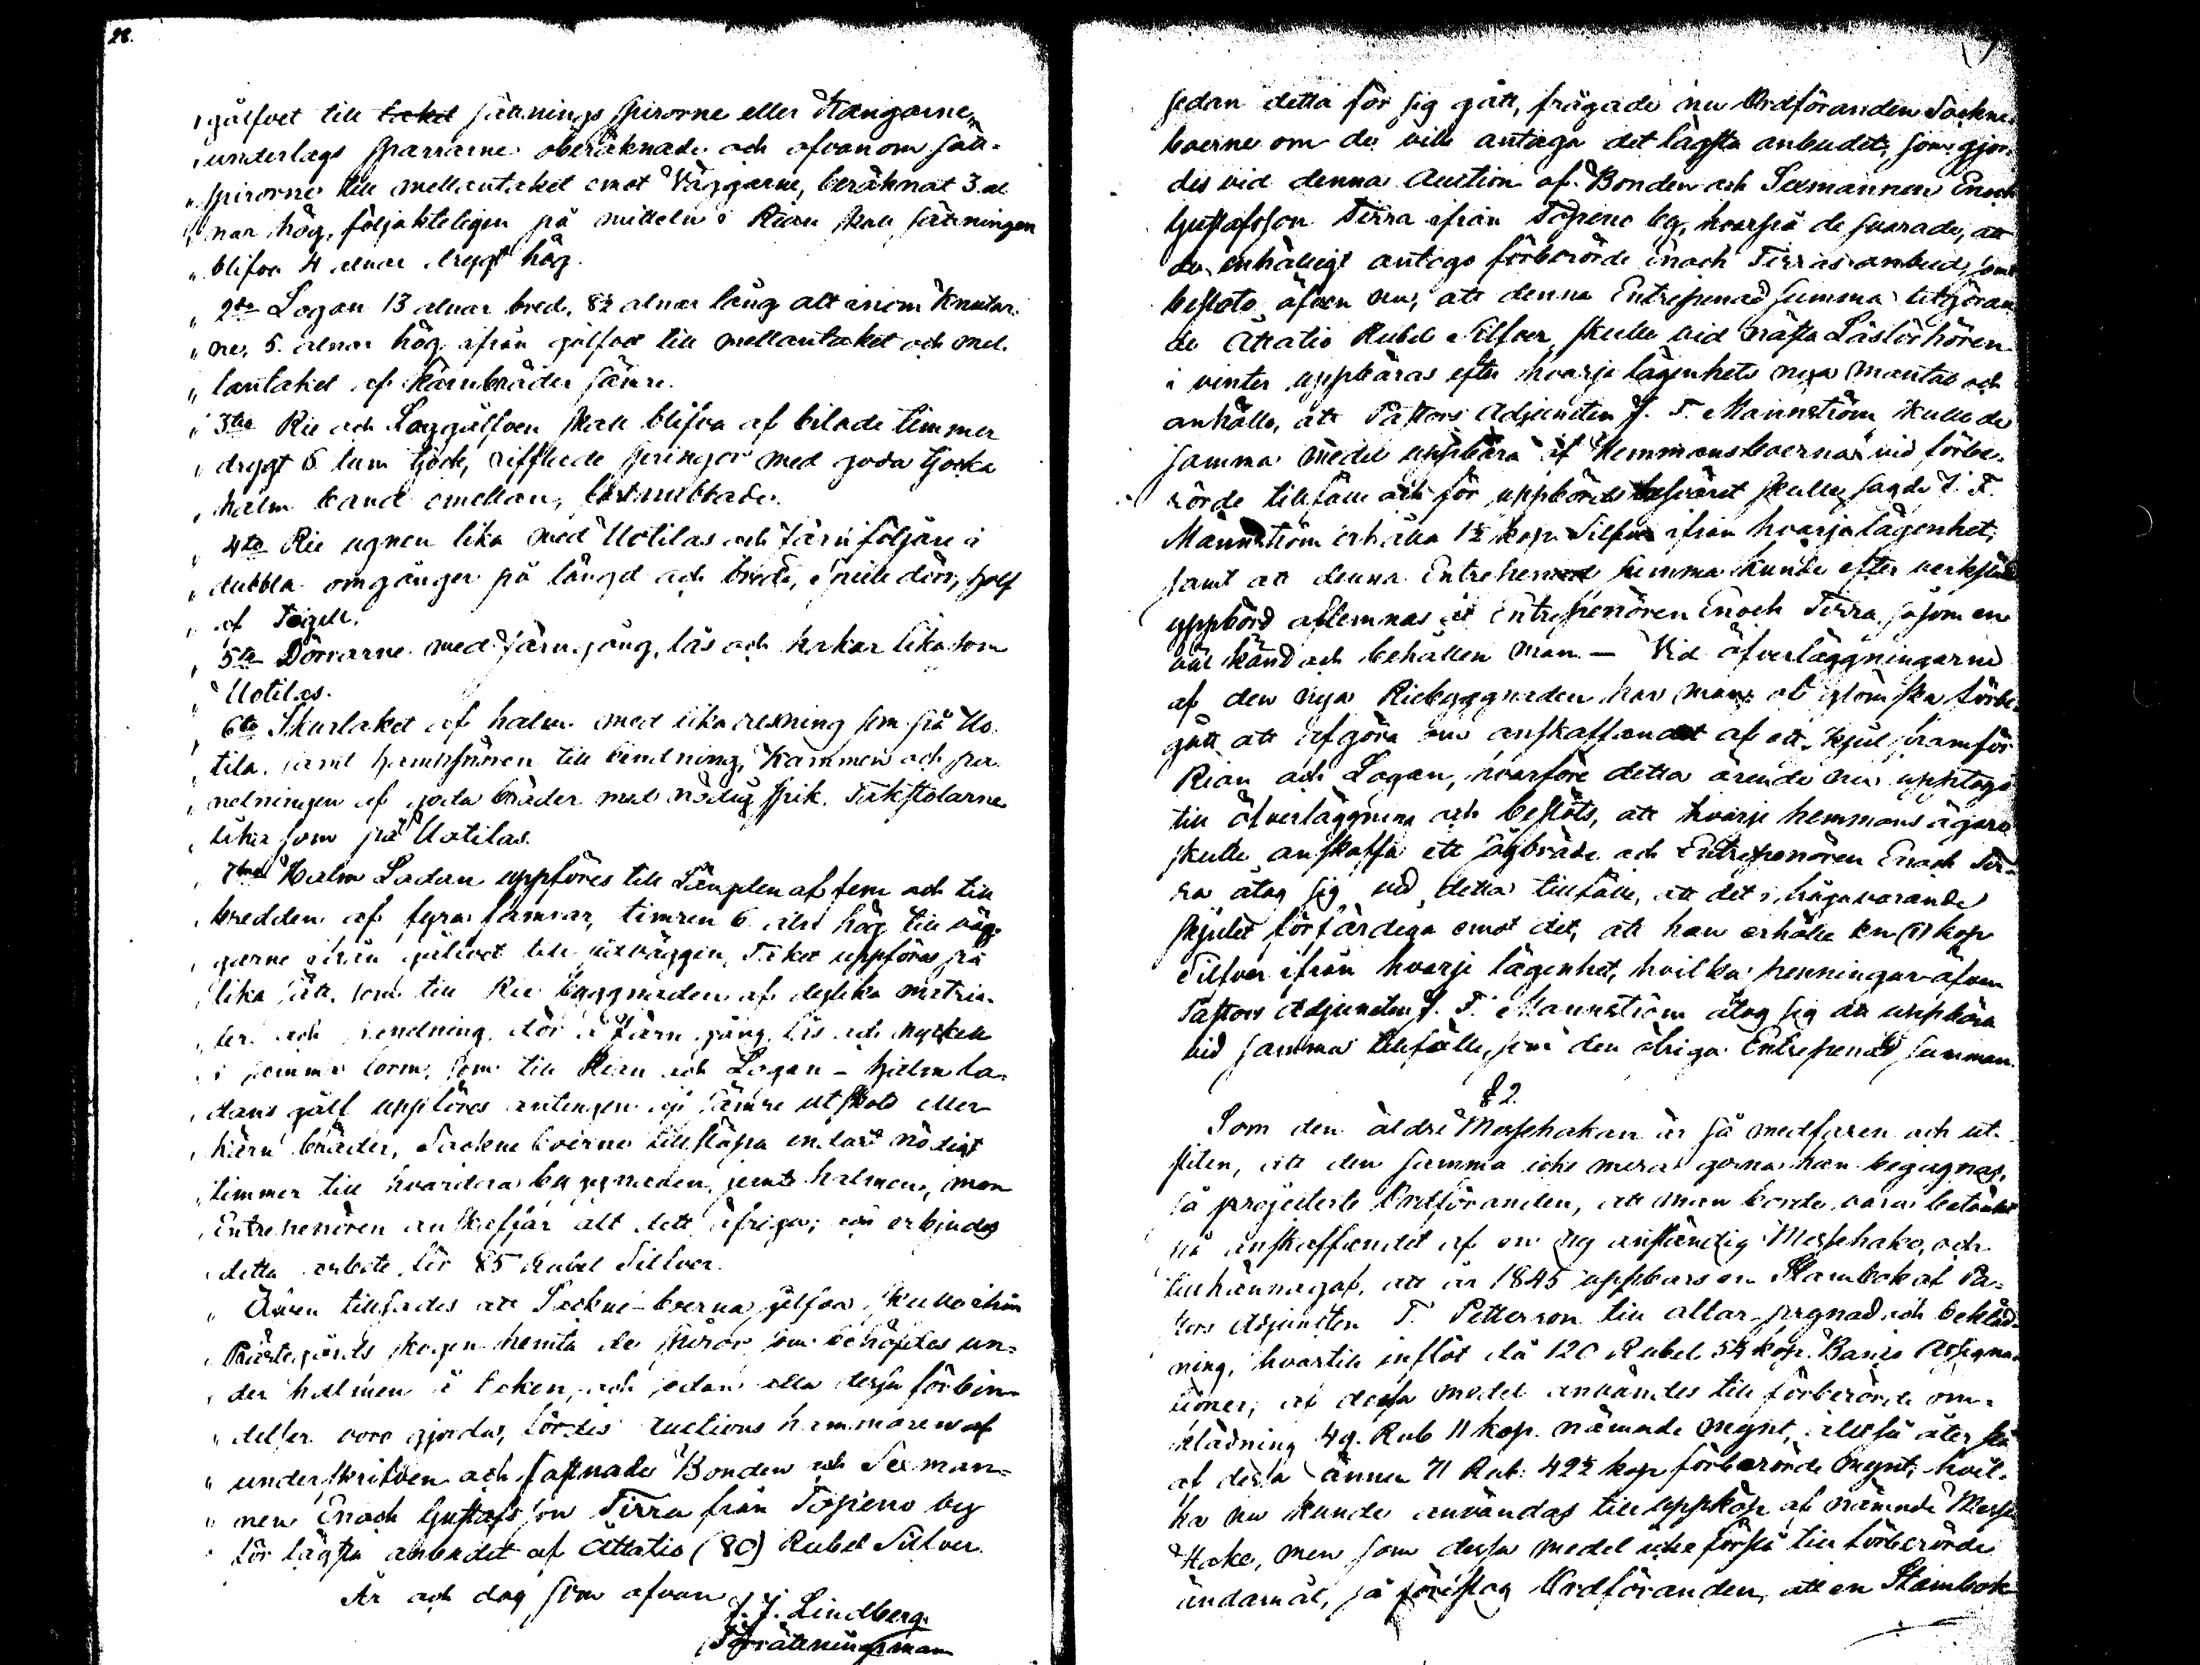 28.
gålfvet till taket sättnings spirorne eller Stängarne,
" underlags sparrarne oberäknade och ofvanom sätt-
" spirorne till mellantaket emot Väggarne, beräknat 3 al
" nar hög, följakteligen på mitteln i Rian skall sättningen
" blifva 4 alnar drygt hög.
" 2do Logan 13 alnar bred, 8½ alnar lång allt inom Knutar
" ne, 5 alnar hög ifrån gålfvet till mellantaket och mel-
" lantaket af Kärnbräder sämre.
" 3tio Rie och Loggålfven skall blifva af bilade timmer
" drygt 6 tum tjock, rifflade springor med goda tjocka
" halm band emellan,
" 4to Rie ugnen lika med Uotilas och Järn följare i
" dubbla omgånger på längd och bredd, spiell dörr, hvalf
" af Tegell.
" 5to Dörrarne med Järn gång, lås och hakar lika som
" Uotilas.
" 6to Skurtaket af halm med lika resning som på Uo-
" tila, samt hampsnören till bindning, Kammen och pa-
" nelningen af goda bräder med nödig spik. Takstolarne
" lika som på Uotilas.
" 7mo Halm Ladan uppföres till Längden af fem och till
" bredden af fyra famnar, timren 6 aln hög till väg-
" garne ifrån gålfvet till utväggen, Taket uppföres på
" lika sätt, som till Rie byggnaden af dylika matria-
" ler och bindning, dör i Järn gång, lås och nyckell
" i samma form, som till Rian och Logan – halm la-
" dans gålf uppföres antingen af sämre utskotts eller
" kärn bräder, Sockne boerne tillsläpa endast nödigt
" timmer till hvardera byggnaden, jemte halmen, men
" Entrepenören anskaffar allt dett öfriga; och erbjudes
" detta arbete för 85 Rubel Silfver.
" Även tillsades att Sockne-boerna sjelfva skulle ifrån
" Prästegårds skogen hemta de spiror som behöfdes un-
" der halmen i taken, och sedan alla dessa förbin-
" delser voro gjorda, fördes auctions hammaren af
" underskrifven och stadnade Bonden och Sexman-
" nen Enoch Gustafsson Tirra från Topeno by
" för lägsta anbudet af Åttatio (80) Rubel Silfver.
År och dag som ofvan
J. J. Lindberg.
Förrättningsman
Sedan detta för sig gått, frågade nu Ordföranden Sockne
boerne om de ville antaga det lägsta anbudet, som gjor-
des vid denna Auction af Bonden och Sexmannen Enoch
Gustafsson Tirra ifrån Topeno by, hvarpå de svarade, att
de enhälligt antogo förberörde Enoch Tirras anbud, samt
beslöto äfven nu, att denna Entrepenad summa utgöran
de Åttatio Rubel Silfver, skulle vid nästa Läsförhören
i vinter uppbäras efter hvarje lägenhets nya mantal och
anhölle, att Pastors Adjuncten J. F. Mannström skulle de
samma medel uppbära af Hemmansboerna vid förbe-
rörde tillfälle och för uppbörds besväret skulle sagde J. F.
Mannström erhålla 1½ kop. Silfver ifrån hvarje lägenhet,
samt att denna Entrepenad summa kunde efter verkställd
uppbörd aflemnas åt Entrepenören Enoch Tirra, såsom en
väl känd och behållen man. – Vid öfverläggningarne
af den nya Riebyggnaden har man af glömska förbi-
gått att afgöra om anskaffandet af ett skjul framför
Rian och Logan, hvarföre detta ärende nu upptogs
till öfverläggning och beslöts, att hvarje hemmans ägare
skulle anskaffa ett sågbräde och Entrepenören Enoch Tir-
ra åtog sig vid detta tillfälle, att det i fråga varande
skjulet förfärdiga emot det, att han erhåller en (1) kop
Silfver ifrån hvarje lägenhet, hvilka penningar äfven
Pastors Adjuncten J. F. Mannström åtog sig att uppbära
vid samma tillfälle, som den öfriga Entrepenad summan.
§ 2.
Som den äldre Messehakan är så medfaren och ut-
sliten, att den samma icke mera gerna kan begagnas,
så projecterte Ordföranden, att man borde vara betänkt
på anskaffandet af en ny anständig Messehake, och
tillkännagaf, att år 1845 uppbars en Stambok af Pa-
stors Adjuncten F. Petterson till altar prydnad och bekläd-
ning, hvartill inflöt då 120 Rubel 54 kop. Banco Assigna-
tioner; af dessa medel användes till förberörde om-
klädning 49. Rub 11 kop. nämnde mynt, alltså åter stå
af dessa ännu 71 Rub. 42½ kop förberörde mynt, hvil-
ka nu kunde användas till uppköp af nämnde Messe
Hake, men som dessa medel icke förslå till förberörde
ändamål, så föreslog Ordföranden, att en Stambok